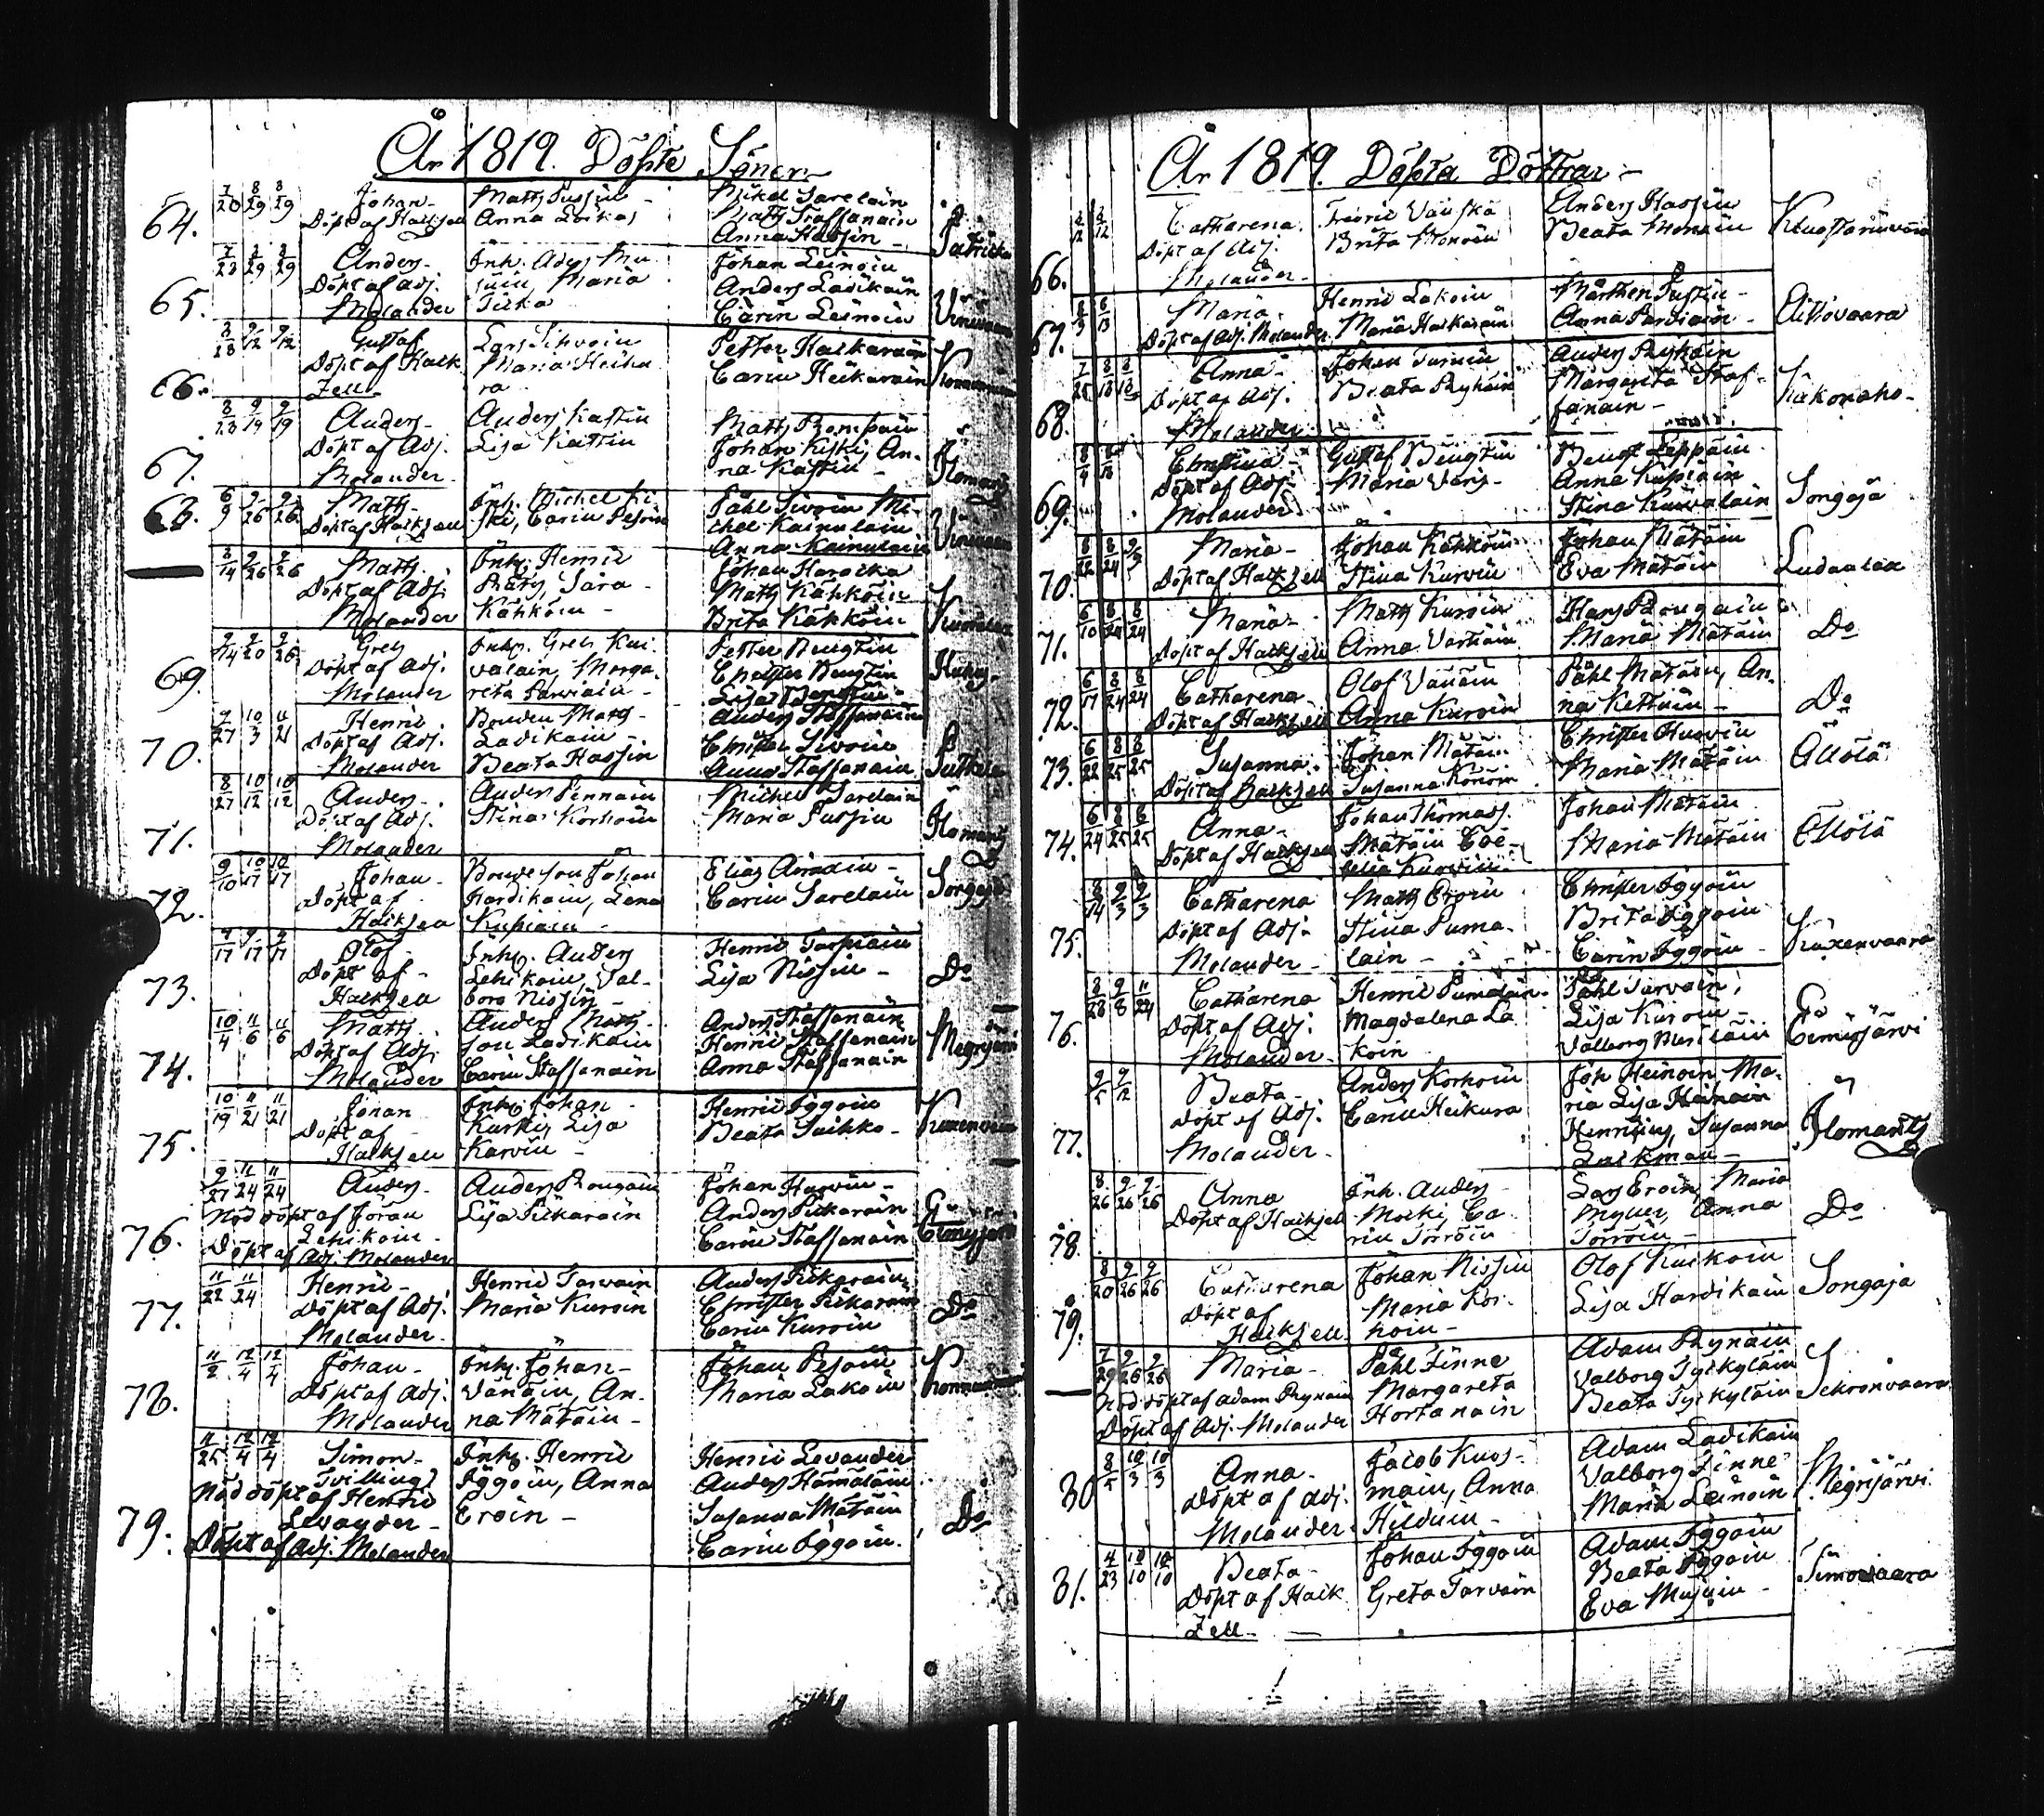 År 1819. Döpte Söner
64.
7/20 8/29 8/29
Johan
Döpt af Haiksell
Matts Pussin
Anna
Mikel Sarelain
Matts Staffanain
Anna Hassin
65.
7/23 8/29 8/29
Anders
Döpt af Adj.
Molander
Inh. Ad
Maria
Johan Leinoin
Anders Ladikain
Carin Leinoin
66.
Gustaf
Döpt af Haik
Zell
Lars Sihvoin
Maria Heiku
ra
Petter Haikarain
Carin Heikurain
67.
8/23 9/19 9/19
Anders
Döpt af Adj.
Molander
Anders Kastin
Lisa Kattin
Matts Romppain
Johan Kiski, An
na Kastin
Ilomants
68.
6/9 9/26 9/26
Matts
Döpt af Haiksell
Inh. Michel Ki
ski, Carin Pesoin
Påhl Sivoin Mi
chel Kainulain
Anna Kainulain
8/14 9/26 9/26
Matts
Döpt af Adj.
Molander
Inh. Henric
Räty, Sara
Kähköin
Johan Harakka
Matts Kähköin
Brita Kähköin
69.
Grels
Döpt af Adj.
Molander
Inh. Grels Kui
valain, Marga
reta Parviain
Petter Bengtin
Christer Bengtin
Lisa Bengtin
70.
9/27 10/3 11/21
Henric
Döpt af Adj.
Molander
Bonden Matts
Ladikain
Beata Hassin
Anders Staffanain
Christer Sivoin
Anna Staffanain
71.
8/27 10/12 10/12
Anders
Döpt af Adj.
Molander
Anders Pennain
Stina Korhoin
Michel Sarelain
Maria Pussin
Ilomants
72.
9/10 10/17 10/17
Johan
Döpt af
Haiksell
Bonde son Johan
Hardikain, Lena
Kupiain
Elias
Carin Sarelain
Songaja
73.
Olof
Döpt af
Haiksell
Inh. Anders
Lehikoin, Val
borg Nissin
Henric Tarpiain
Lisa Nissin
Do
74.
10/4 11/6 11/6
Matts
Döpt af Adj.
Molander
Anders Matts
son Ladikain
Carin Staffanain
Anders Staffanain
Henric Staffanain
Anna Staffanain
Megrijärvi
75.
10/19 11/21 11/21
Johan
Döpt af
Haiksell
Inh. Johan
Kurki, Lisa
Karvin
Henric Iggoin
Beata Saikko
76.
9/27 11/24 11/24
Anders
Nöd döpt af Jöran
Lehikoin
Döpt af Adj. Molander
Anders Rougain
Lisa Pikarain
Johan Hurvin
Anders Pikarain
Carin Staffanain
77.
11/22 11/24
Henric
Döpt af Adj.
Molander
Henric Tarvain
Maria Kuroin
Anders Pikarain
Christer Pikarain
Carin Kuroin
Do
78.
11/2 12/4 12/4
Johan
Döpt af Adj.
Molander
Inh. Johan
Vänäin, An
na Mätäin
Johan Pesoin
Maria Lakoin
79.
11/25 12/4 12/4
Simon
Tvilling
Nöd döpt af Henric
Levander
Döpt af Adj. Molander
Inh. Henric
Iggoin, Anna
Eroin
Henric Levander
Anders Hämäläin
Susanna Mätäin
Carin Iggoin
Do
År 1819. Döpta Döttrar
66.
Catharena
Döpt af Adj.
Molander
Fredric Vänskä
Brita Mononin
Anders Hassin
Beata Mononin
67.
Maria
Döpt af Adj. Molander
Henric Lakoin
Maria Haikarain
Mårthen Pustin
Anna Parviain
68.
7/25 8/18 8/18
Anna
Döpt af Adj.
Molander
Johan Turuin
Beata Ryhäin
Anders Ryhäin
Margareta Staf
fanain
69.
Christina
Döpt af Adj.
Molander
Gustaf Bengtin
Maria
Bengt Leppäin
Anna Kupiain
Stina Kuivalain
Songaja
70.
Maria
Döpt af Haiksell
Johan Kähköin
Stina Kurvin
Johan Mätäin
Eva Mätäin
71.
6/10 8/24 8/24
Maria
Döpt af Haiksell
Matts Kuroin
Anna Vartiain
Hans Rougain
Maria Mätäin
Do
72.
6/17 8/24 8/24
Catharena
Döpt af Haiksell
Olof Vänäin
Anna Kuroin
Påhl Mätäin, An
na Kettuin
Do
73.
6/22 8/25 8/25
Susanna
Döpt af Haiksell
Johan Mätäin
Susanna Konoin
Christer Hurvin
Maria Mätäin
74.
6/24 8/25 8/25
Anna
Döpt af Haiksell
Johan Thomass.
Mätäin Cee
celia Kurvin
Johan Mätäin
Maria Mätäin
75.
8/14 9/3 9/3
Catharena
Döpt af Adj.
Molander
Matts Eroin
Stina Puma
lain
Christer Iggoin
Brita Iggoin
Carin Iggoin
76.
Catharena
Döpt af Adj.
Molander
Henric Pumalain
Magdalena La
koin
Påhl Tarvain,
Lisa Kuroin
Valborg Meriläin
77.
9/5 9/12
Beata
Döpt af Adj.
Molander
Anders Korhoin
Carin Heikura
Joh Heinoin, Ma
ria Lisa Heinoin
Henricius, Susanna
Lackman
Ilomants
78.
8/26 9/26 9/26
Anna
Döpt af Haiksell
Inh. Anders
Ca
rin Torroin
Lars Eroin, Maria
Myller, Anna
Torroin
Do
79.
8/20 9/26 9/26
Catharena
Döpt af
Haiksell
Johan Nissin
Maria Kor
hoin
Olof Kaikoin
Lisa Hardikain
Songaja
7/29 9/26 9/26
Maria
Nöd döpt af Adam Rynäin
Döpt af Adj. Molander
Påhl Finne
Margareta
Hortanain
Adam Rynäin
Valborg Tyrkyläin
Beata Tyrkyläin
Sekronvaara
80
8/5 10/3 10/3
Anna
Döpt af Adj.
Molander
Jacob Kuos
main, Anna
Hilduin
Adam Ladikain
Valborg Finne
Maria Leinoin
Megrijärvi
81.
4/23 10/10 10/10
Beata
Döpt af Haik
Zell
Johan Iggoin
Greta Tarvain
Adam Iggoin
Beata Iggoin
Eva Musuin
Simovaara